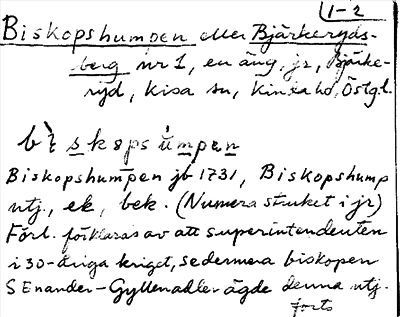 1-2
Biskopshumpen eller Bjärkeryds-
berg nr 1, en äng, jr, Bjärke-
ryd, Kisa sn, Kinda hd, Östgl.
bìskopsùmpen
Biskopshumpen jb 1731, Biskopshump
utj., ek, bek. (Numera struket i jr)
Förl. förklaras av att superintendenten
i 30-åriga kriget, sedermera biskopen
S Enander-Gyllenadler ägde denna utj.
forts